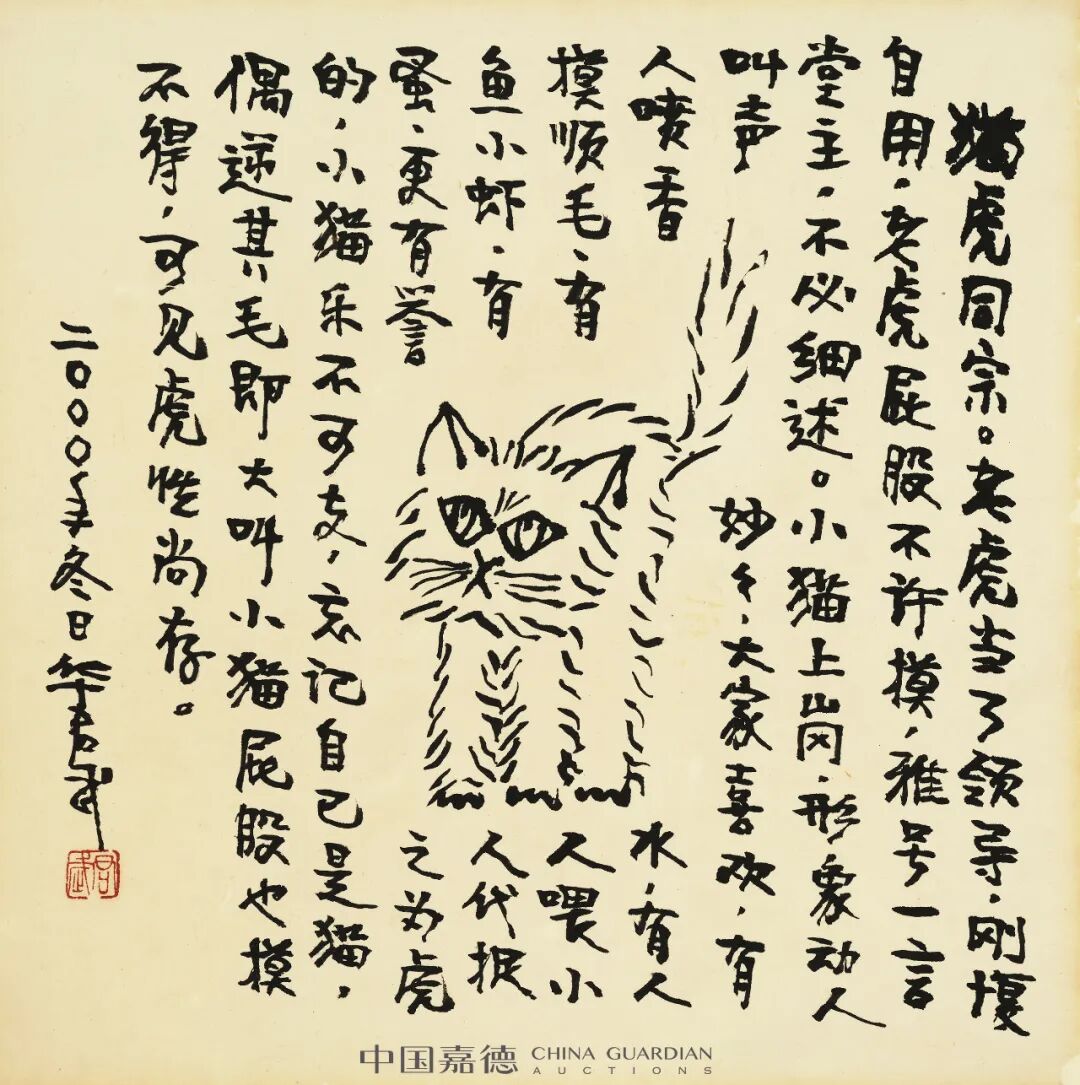 猫虎同宗。老虎当了领导，刚愎
自用，老虎屁股不许摸，雅号一言
堂主，不必细述。小猫上岗，形象动人
叫声妙々，大家喜欢，有
人喷香水，有人
摸顺毛，有人喂小
鱼小虾，有人代捉
蚤，更有誉之为虎
的，小猫乐不可支，忘记自己是猫，
偶逆其毛即大叫小猫屁股也摸
不得，可见虎性尚存。
二〇〇〇年冬日 华君武
君武
中国嘉德 CHINA GUARDIAN
AUCTIONS